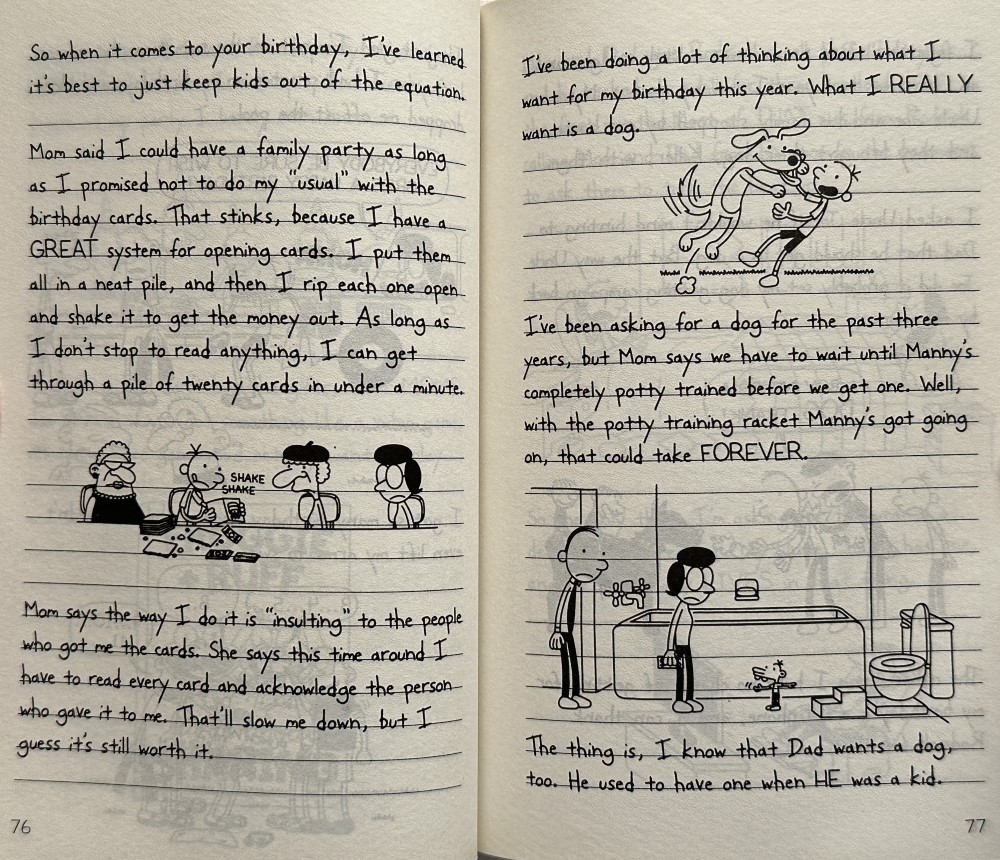 So when it comes to your birthday, I've learned
it's best to just keep kids out of the equation.
Mom said I could have a family party as long
as I promised not to do my "usual" with the
birthday cards. That stinks, because I have a
GREAT system for opening cards. I put them
all in a neat pile, and then I rip each one open
and shake it to get the money out. As long as
I don't stop to read anything, I can get
through a pile of twenty cards in under a minute.
SHAKE
SHAKE
Mom says the way I do it is "insulting" to the people
who got me the cards. She says this time around I
have to read every card and acknowledge the person
who gave it to me. That'll slow me down, but I
guess it's still worth it.
76
I've been doing a lot of thinking about what I
want for my birthday this year. What I REALLY
want is a dog.
I've been asking for a dog for the past three
years, but Mom says we have to wait until Manny's
completely potty trained before we get one. Well,
with the potty training racket Manny's got going
on, that could take FOREVER.
The thing is, I know that Dad wants a dog,
too. He used to have one when HE was a kid.
77